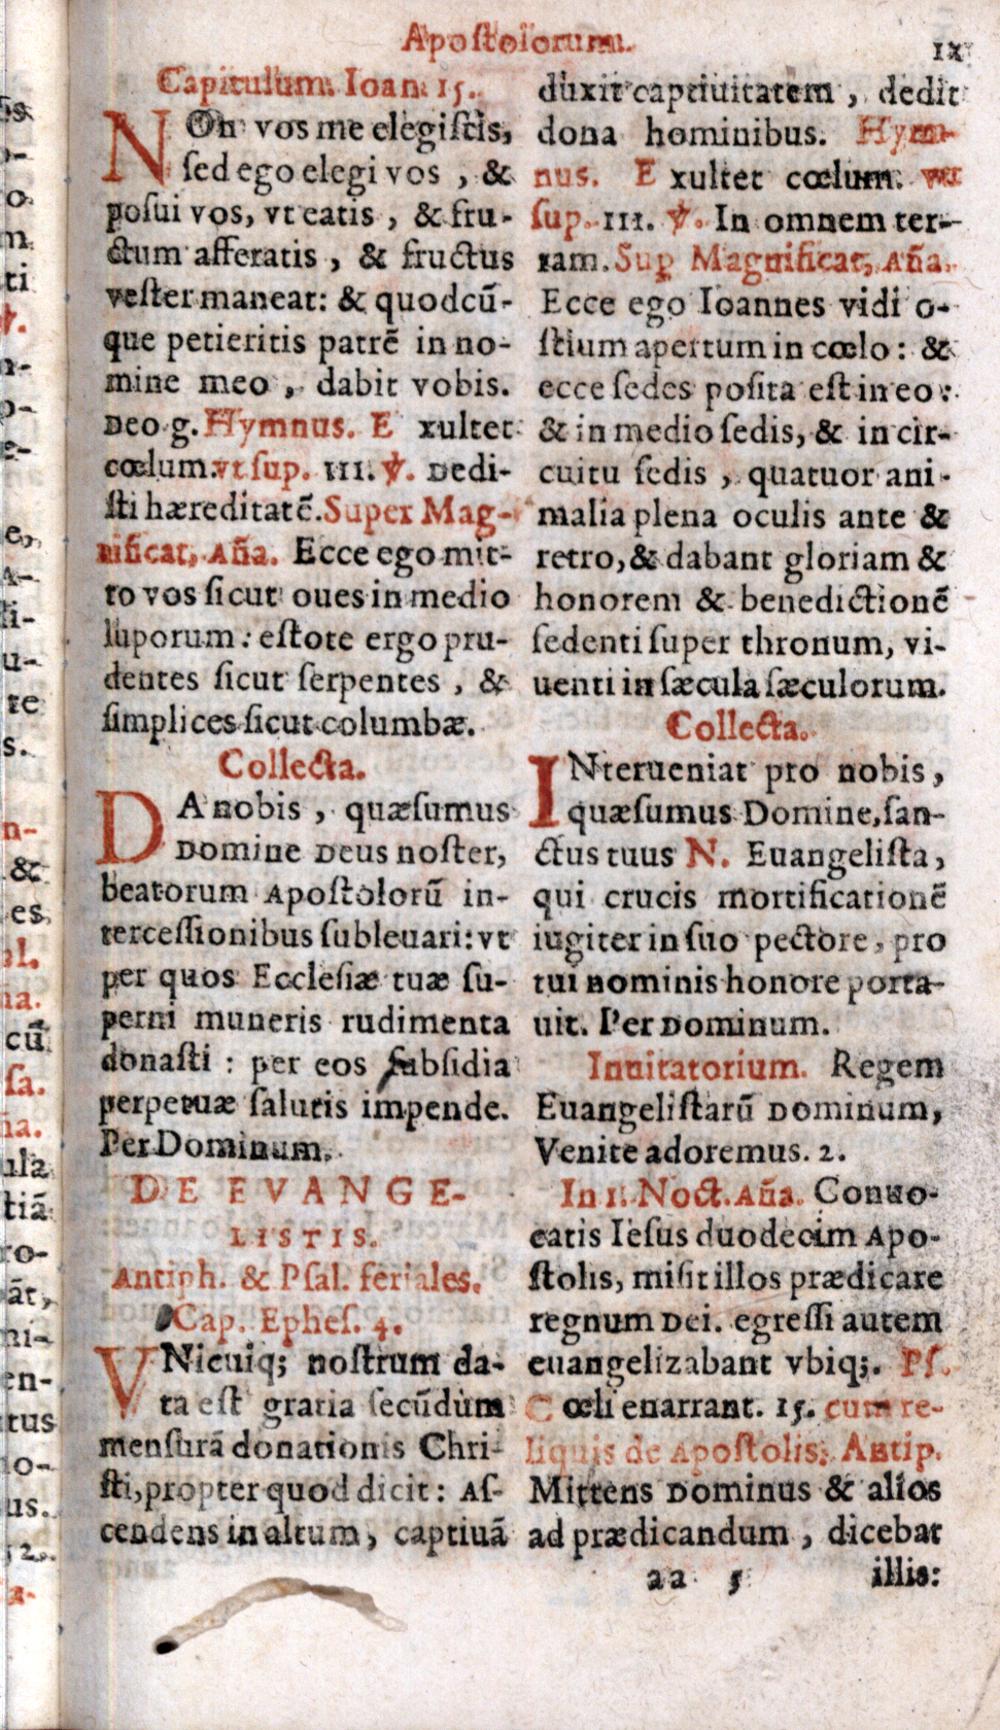 Apostolorum.
ix
Capitulum. Ioan. 15.
NOn vos me elegistis,
sed ego elegi vos , &
posui vos, vt eatis , & fru-
ctum afferatis , & fructus
vester maneat: & quodcũ-
que petieritis patrẽ in no-
mine meo , dabit vobis.
Deo g. Hymnus. E xultet
cœlum. vt sup. III. ℣. Dedi-
sti hæreditatẽ. Super Mag-
nificat, Aña. Ecce ego mit-
to vos sicut oues in medio
luporum : estote ergo pru-
dentes sicut serpentes , &
simplices sicut columbæ.
Collecta.
DA nobis , quæsumus
Domine Deus noster,
beatorum Apostolorũ in-
tercessionibus subleuari: vt
per quos Ecclesiæ tuæ su-
perni muneris rudimenta
donasti : per eos subsidia
perpetuæ salutis impende.
Per Dominum.
DE EVANGE-
LISTIS.
Antiph. & Psal. feriales.
Cap. Ephes. 4.
VNicuiq; nostrum da-
ta est gratia secũdùm
mensurã donationis Chri-
sti, propter quod dicit : As-
cendens in altum, captiuã
duxit captiuitatem , dedit
dona hominibus. Hym-
nus. E xultet cœlum. vt
sup. III. ℣. In omnem ter-
ram. Sup Magnificat, Aña.
Ecce ego Ioannes vidi o-
stium apertum in cœlo : &
ecce sedes posita est in eo :
& in medio sedis, & in cir-
cuitu sedis , quatuor ani-
malia plena oculis ante &
retro, & dabant gloriam &
honorem & benedictionẽ
sedenti super thronum, vi-
uenti in sæcula sæculorum.
Collecta.
INterueniat pro nobis,
quæsumus Domine, san-
ctus tuus N. Euangelista,
qui crucis mortificationẽ
iugiter in suo pectore, pro
tui nominis honore porta-
uit. Per Dominum.
Inuitatorium. Regem
Euangelistarũ Dominum,
Venite adoremus. 2.
In 1. Noct. Aña. Conuo-
catis Iesus duodecim Apo-
stolis, misit illos prædicare
regnum Dei. egressi autem
euangelizabant vbiq;. Ps.
C œli enarrant. 15. cum re-
liquis de Apostolis. Antip.
Mittens Dominus & alios
ad prædicandum , dicebat
aa 5 illis: